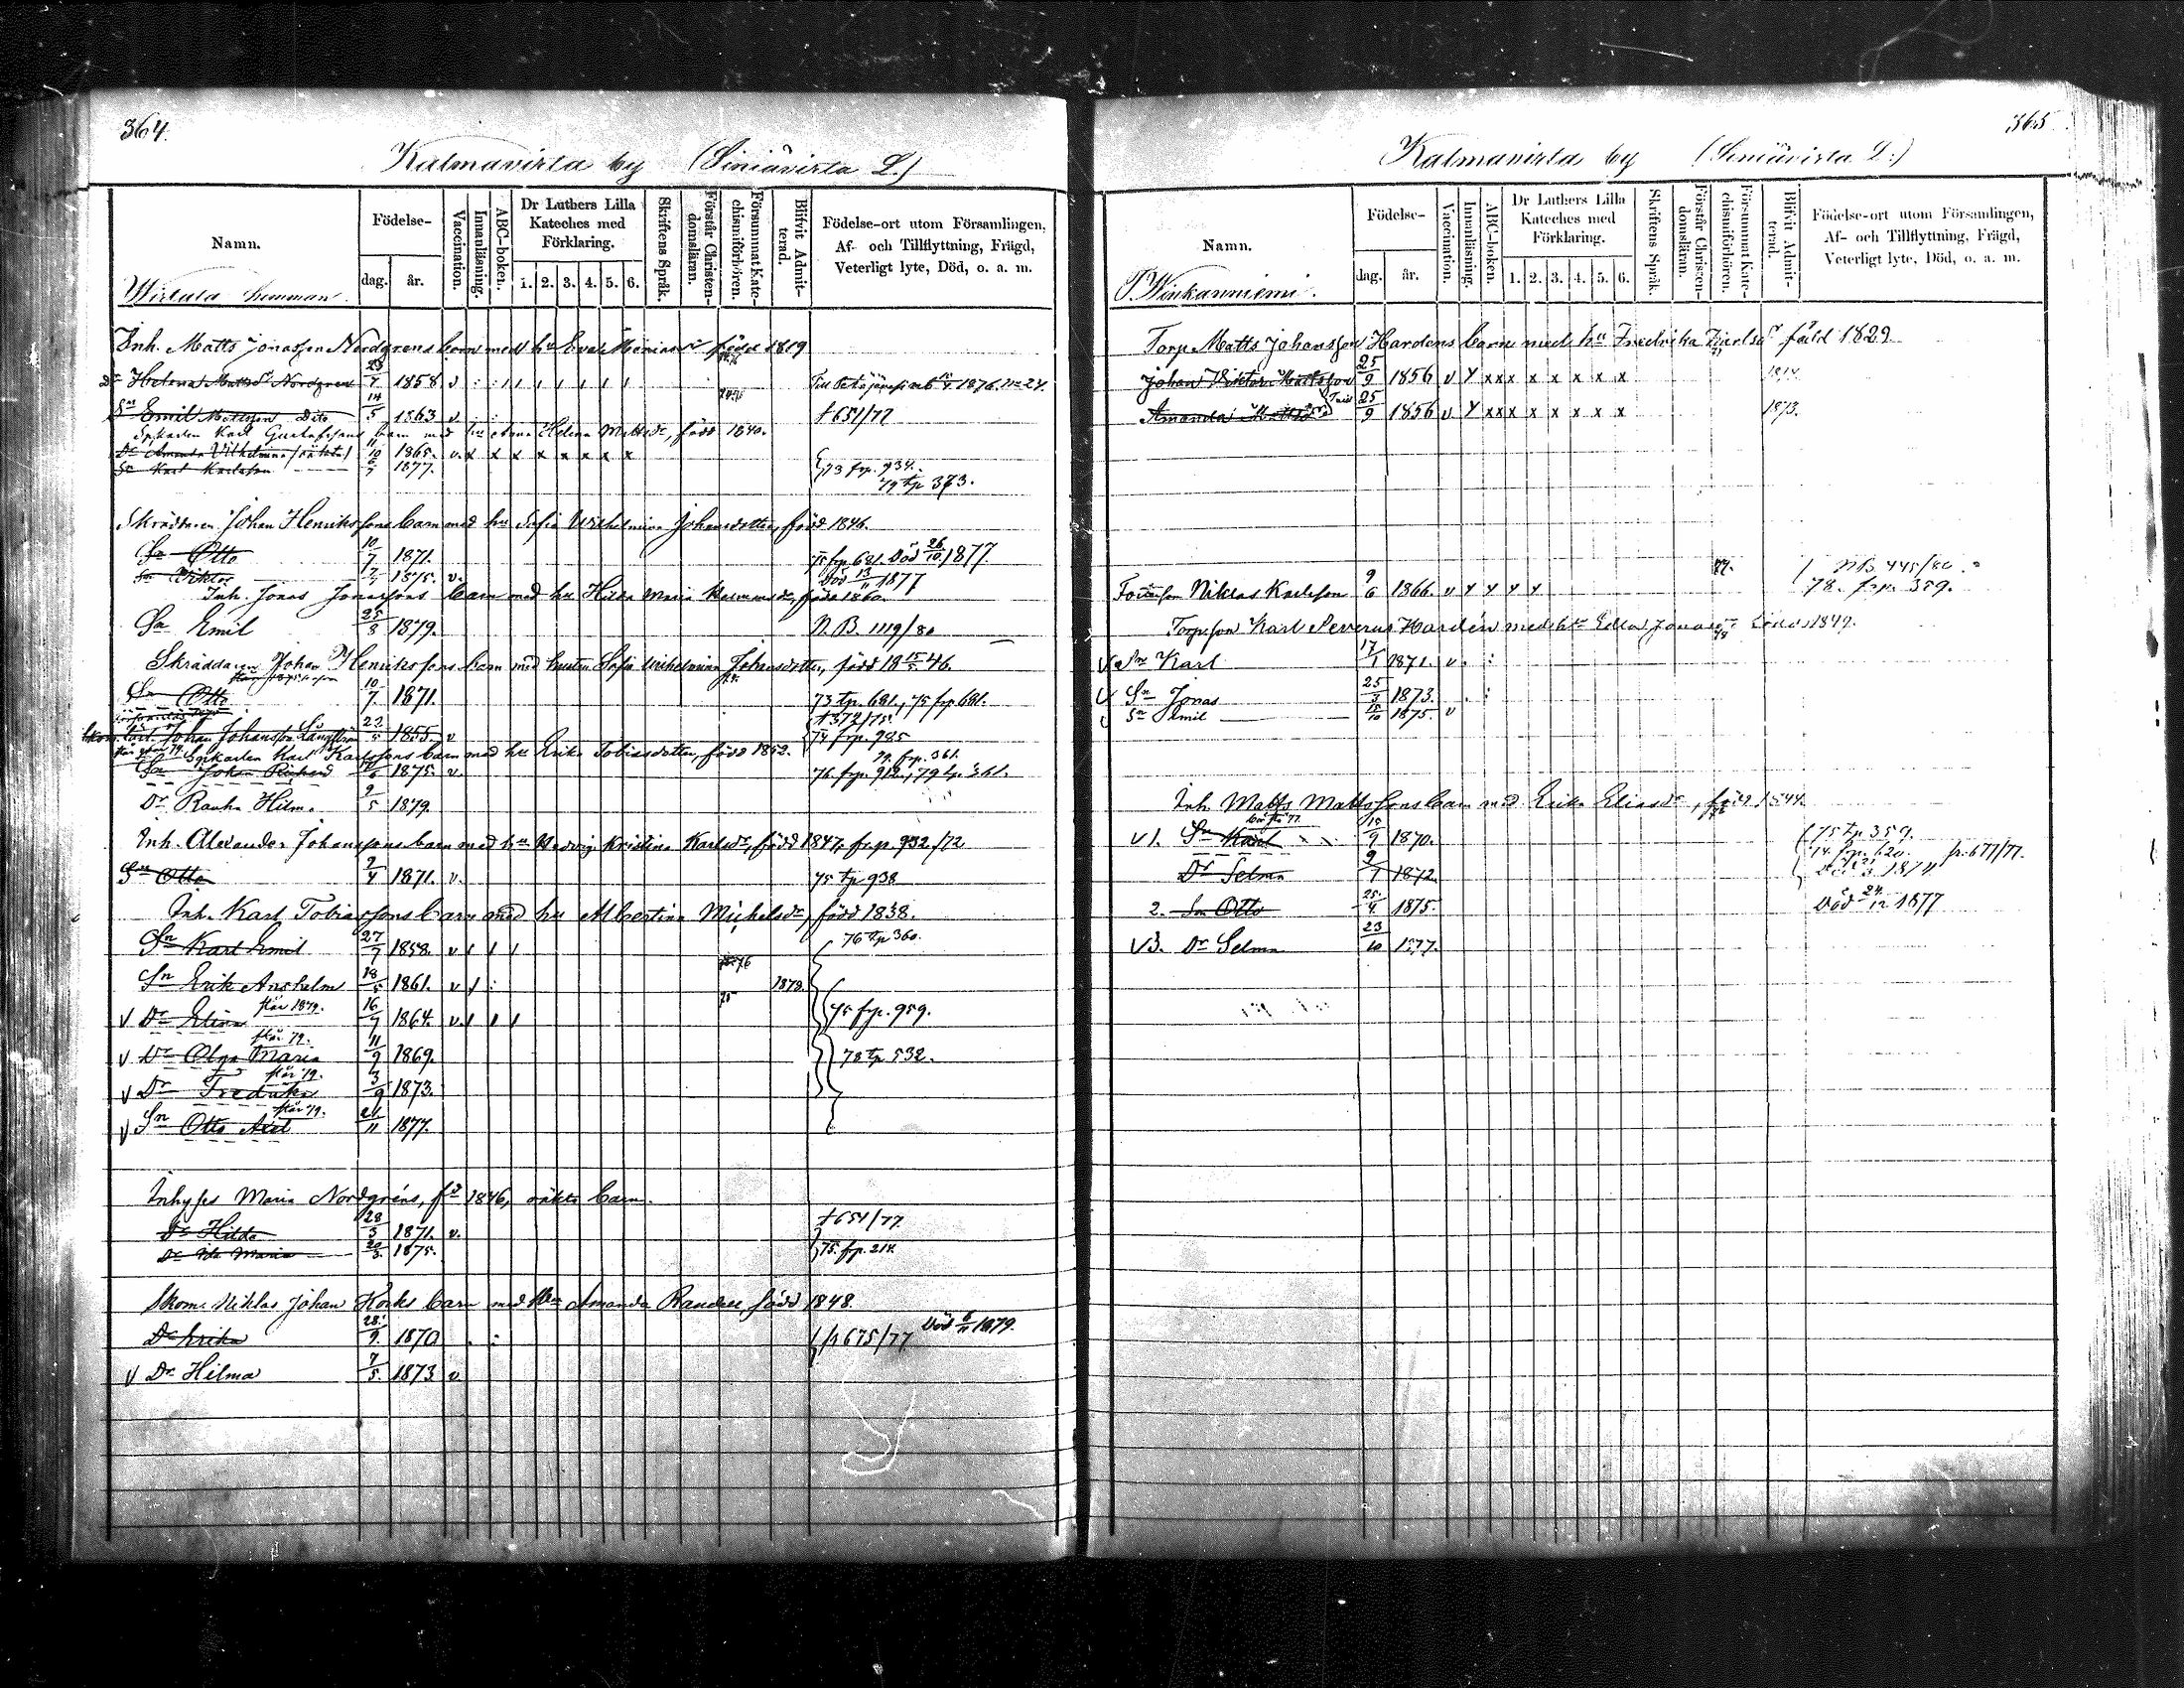 364.
Kalmavirta by (Siniävirta L.)
Namn.
Födelse-
dag. år.
Vaccination.
Innanläsning.
ABC-boken.
Dr Luthers Lilla Kateches med Förklaring.
1. 2. 3. 4. 5. 6.
Skriftens Språk.
Förstår Christendomsläran.
Försummat Katechismiförhören.
Blifvit Admitterad.
Födelse-ort utom Församlingen, Af- och Tillflyttning, Frägd, Veterligt lyte, Död, o. a. m.
Wirtula hemman.
Inh. Matts Jonasson Nordgrens barn med hu Eva född 1819
Dr Helena Mattsdr Nordgren 23/7 1858 v
Sn Emil Mattsson Dito 14/5 1863 v. † 651/77
Spkarlen Karl Gustafssons barn med hu Anna Helena Mattsdr, född 1840.
Dr Amanda Vilhelmina (oäkta) 11/10 1865. v. x x x x x x x x
Sn Karl Karlsson 1877. 73 frp. 934.
79 tp 373.
Skräddaren Johan Henrikssons barn med hu Sofia Wilhelmina Johansdotter, född 1846.
Sn Otto 10/7 1871. 75 frp 681. Död 26/10 1877.
Sn Viktor 1875. v. Död 13/11 1877
Inh. Jonas Jonassons barn med hu Hilda Maria född 1860.
Sn Emil 25/8 1879. N. B. 1119/80
Skräddaren Johan Henrikssons barn med hustru Sofia Wilhelmina Johansdotter, född 18 15/5 46.
Sn Otto 10/7 1871. 73 tp. 681., 75 frp 681.
† 372/75.
Johan Johansson Långström 23/5 1855 v 74 frp. 985
Spkarlen Karl Karlssons barn med hu Erika Tobiasdotter, född 1852. 77. frp. 361.
Sn Johan Richard 1875. v. 76. frp. 912., 79 tp. 361.
Dr Rauha Hilma 9/5 1879.
Inh. Alexander Johanssons barn med hu Hedvig Kristina Karlsdr, född 1847, frp 932/72
Sn Otto 2/4 1871. v. 75 tp 938
Inh. Karl Tobiassons barn med hu Albertina Michelsdr, född 1838.
Sn Karl Emil 27/7 1858. v 76 tp 360.
Sn Erik Anshelm 18/5 1861. v 1878.
V Dr Elina står 1879. 16/7 1864. v. 75 frp. 959.
V Dr Olga Maria står 79. 11/9 1869. 78 tp 532.
V Dr Fredrika står 79. 3/9 1873.
V Sn Otto Axel står 79. 21/11 1877.
Inhyses Maria Nordgréns, fd 1846, oäkta barn.
Dr Hilda 28/3 1871. v. † 651/77.
Dr Ida Maria 20/3 1875. 75. frp. 214.
Skom. Niklas Johan Korks barn med hu Amanda född 1848.
Dr Erika 28/9 1870 fr 675/77 Död 6/11 1879.
V Dr Hilma 7/5 1873 v
365
Kalmavirta by (Siniävirta L.)
Namn.
Födelse-
dag. år.
Vaccination.
Innanläsning.
ABC-boken.
Dr Luthers Lilla Kateches med Förklaring.
1. 2. 3. 4. 5. 6.
Skriftens Språk.
Förstår Christendomsläran.
Försummat Katechismiförhören.
Blifvit Admitterad.
Födelse-ort utom Församlingen, Af- och Tillflyttning, Frägd, Veterligt lyte, Död, o. a. m.
T. Winkanniemi.
Torp. Matts Johansson Hardens barn med hu Fredrika född 1829.
Johan Viktor Mattsson 25/9 1856 v Y x x x x x x x x
Amanda Mattsdr 25/9 1856 v Y x x x x x x x x 1873.
Niklas Karlsson 9/6 1866. v Y Y Y Y N B 445/80
78. frp. 359.
Torp.son Karl Severus Hardén med hu Edla Jonasdr 1849.
V Sn Karl 17/1 1871. v.
V Sn Jonas 25/3 1873.
V Sn Emil 15/10 1875. v
Inh. Matts Mattssons barn med Erika Eliasdr, född 1844.
V 1. Sn Karl 1870. 75 tp 359.
74. frp. 620. fr. 677/77.
Dr Selma 9/1 1872. 1874
2. Sn Otto 25/4 1875. Död 24/12 1877
V 3. Dr Selma 23/10 1877.